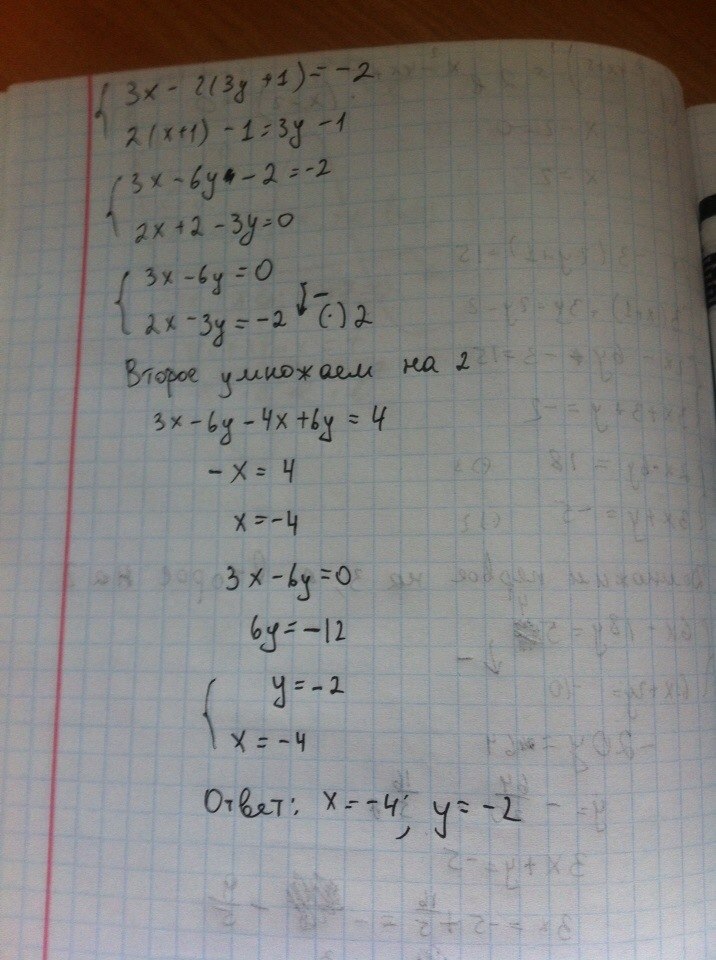 3x - 2(3y + 1) = -2
2(x+1) - 1 = 3y - 1
3x - 6y - 2 = -2
2x + 2 - 3y = 0
3x - 6y = 0
2x - 3y = -2 ↓ - (·) 2
Второе умножаем на 2
3x - 6y - 4x + 6y = 4
-x = 4
x = -4
3x - 6y = 0
6y = -12
y = -2
x = -4
Ответ: x = -4; y = -2